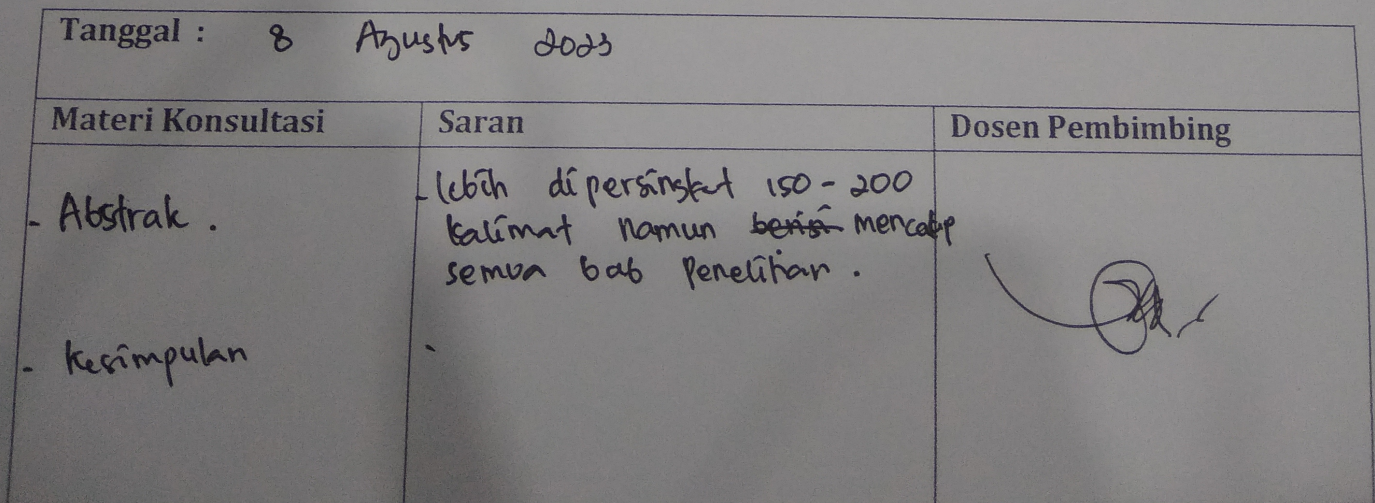 Tanggal : 8 Agustus 2023
Materi Konsultasi Saran Dosen Pembimbing
- Abstrak . - lebih dipersingkat 150 - 200
kalimat namun berisi mencakup
semua bab Penelitian .
- Kesimpulan -